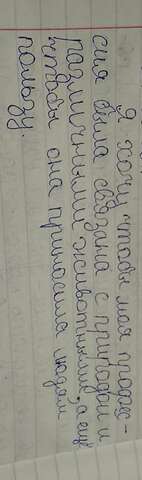 Я хочу чтобы моя профес-
сия была связана с природой и
различными животными, а ещё
чтобы она приносила людям
пользу.